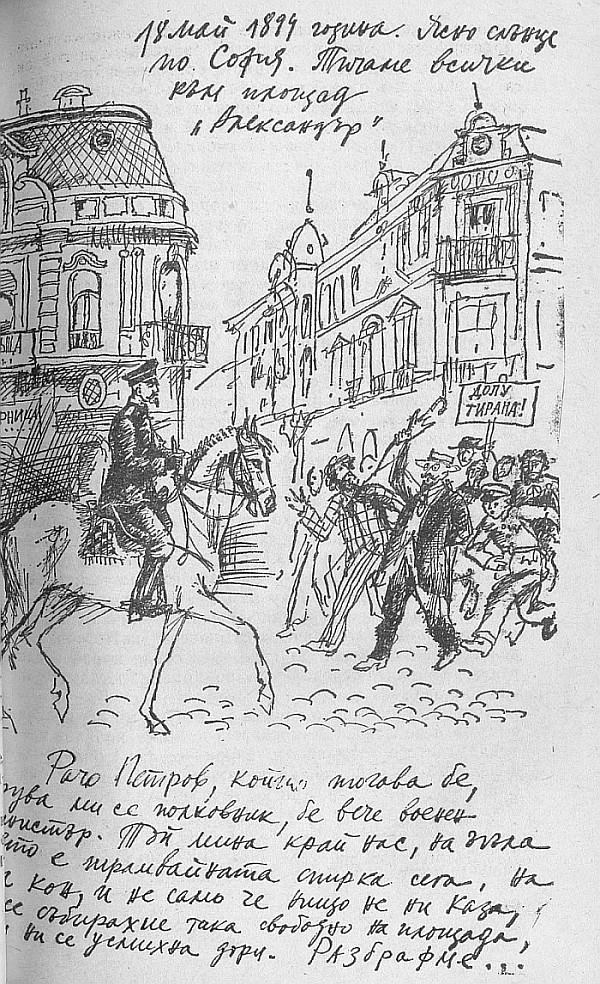 18 май 1894 година. Ясно слънце
по София. Тичаме всички
към площад
„Александър"
ДОЛУ
ТИРАНА!
ЬЦА
РНИЦА
Рачо Петров, който тогава бе,
ми се полковник, бе вече военен
Той мина край нас, на ъгъла
е трамвайната спирка сега, на
кон, и не само че нищо не ни каза,
се събирахме така свободно на площада,
ни се усмихна дори. Разбрахме...